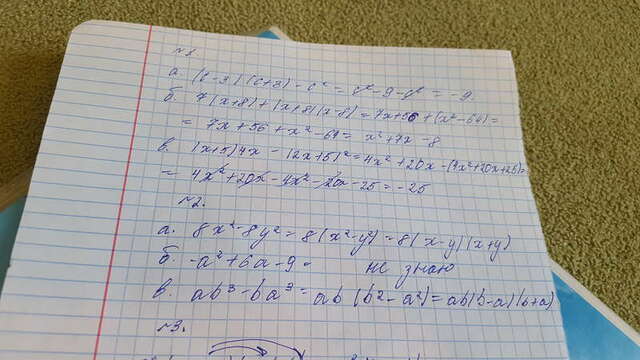 №1
а. (c-3)(c+3) - c² = c² - 9 - c² = -9.
б. 7(x+8)+(x+8)(x-8) = 7x+56+(x²-64) =
= 7x+56+x²-64 = x²+7x-8
в. (x+5)4x - (2x+5)² = 4x²+20x-(4x²+20x+25)=
= 4x²+20x-4x²-20x-25 = -25
№2.
а. 8x²-8y² = 8(x²-y²) = 8(x-y)(x+y)
б. -a²+6a-9 - не знаю
в. ab³-ba³ = ab(b²-a²) = ab(b-a)(b+a)
№3.